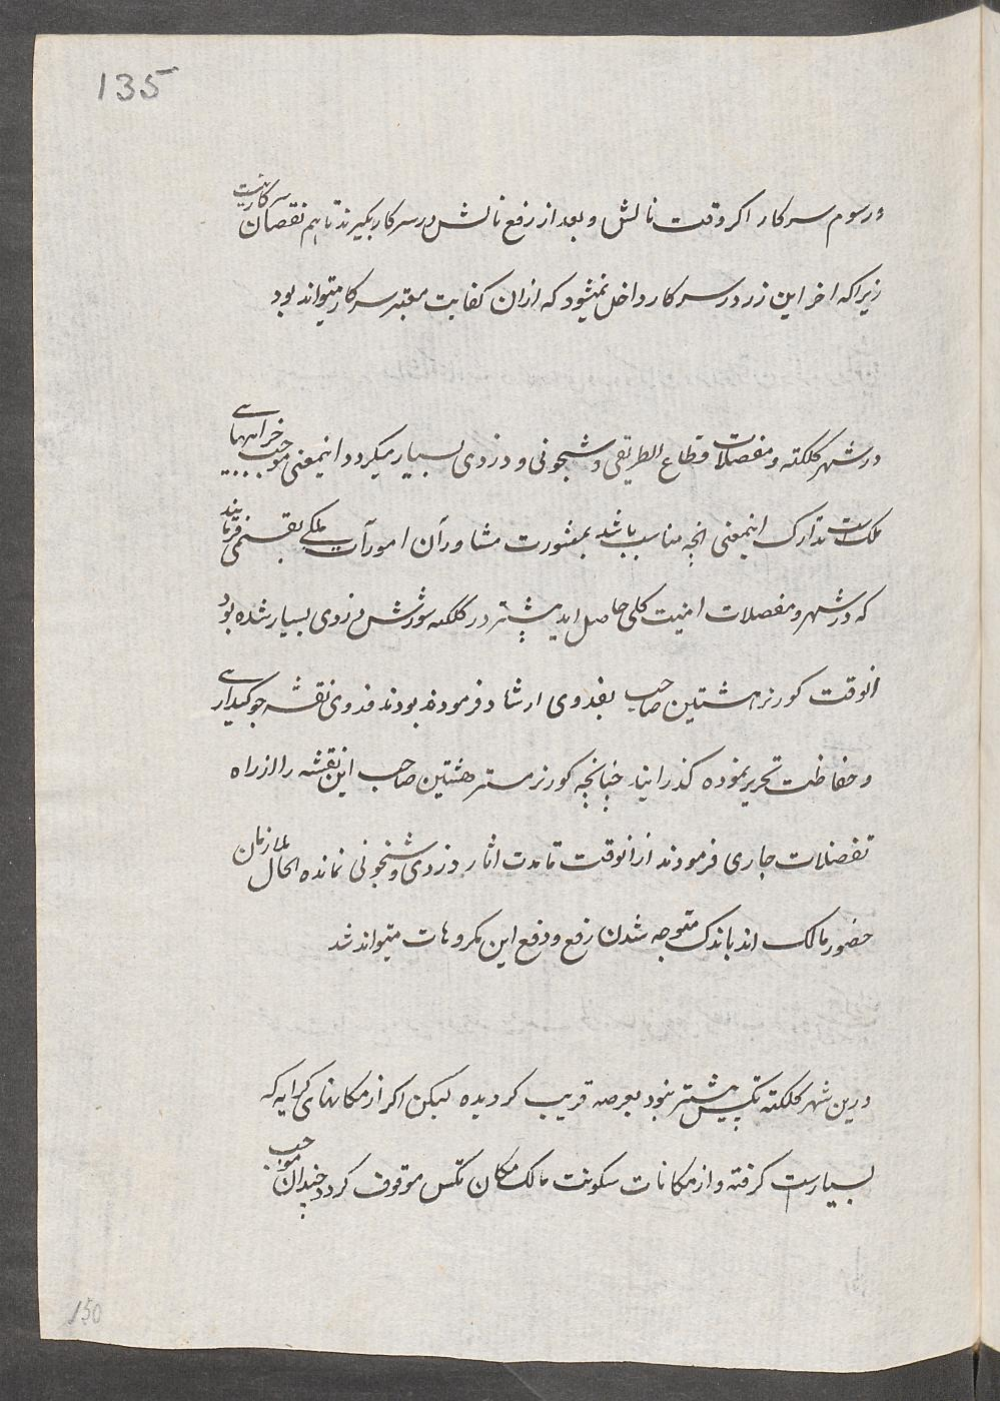 135
و رسوم سرکار اکر وقت نالش و بعد از رفع نالش در سرکار بکیرند تاهم نقصان سرکار نیست
زیراکه اخر این زر در سرکار داخل نمیشود که ازان کفایت معتبر سرکار میتواند بود
در شهر کلکته و مفصلات قطاع الطریقی و شبخونی و دزدی بسیار میکردد اینمعنی موجب خرابیهای
ملک ست تدارک اینمعنی انچه مناسب باشد بمشورت مشاوران امورات ملکی بقسمی فرمایند
که در شهر و مفصلات امنیت کلی حاصل اید پیشتر در کلکته شورش دزدی بسیار شده بود
انوقت کورنر هشتین صاحب بفدوی ارشاد فرموده بودند فدوی نقشه چوکیداری
و حفاظت تحریر نموده کذرانید چنانچه کورنر مستر هشتین صاحب این نقشه را از راه
تفضلات جاری فرمودند از انوقت تا مدت اثار دزدی و شبخونی نمانده الحال ملازمان
حضور مالک اند باندک متوجه شدن رفع و دفع این مکروهات میتواند شد
درین شهر کلکته تکس پیشتر نبود بعرصه قریب کردیده لیکن اکر از مکانهای کرایه که
بسیارست کرفته و از مکانات سکونت مالک مکان تکس موقوف کردد چندان موجب
150